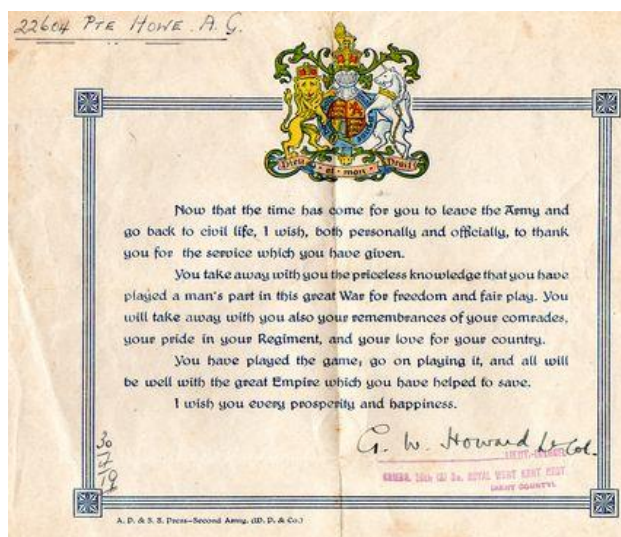 22604 PTE HOWE. A. G.
Dieu et mon Droit
Now that the time has come for you to leave the Army and
go back to civil life, I wish, both personally and officially, to thank
you for the service which you have given.
You take away with you the priceless knowledge that you have
played a man's part in this great War for freedom and fair play. You
will take away with you also your remembrances of your comrades,
your pride in your Regiment, and your love for your country.
You have played the game; go on playing it, and all will
be well with the great Empire which you have helped to save.
I wish you every prosperity and happiness.
G. W. Howard Lt Col.
LIEUT.-COLONEL
ROYAL WEST KENT REGT
(KENT COUNTY).
30/7/19
A. P. & S. S. Press—Second Army. (W. P. & Co.)